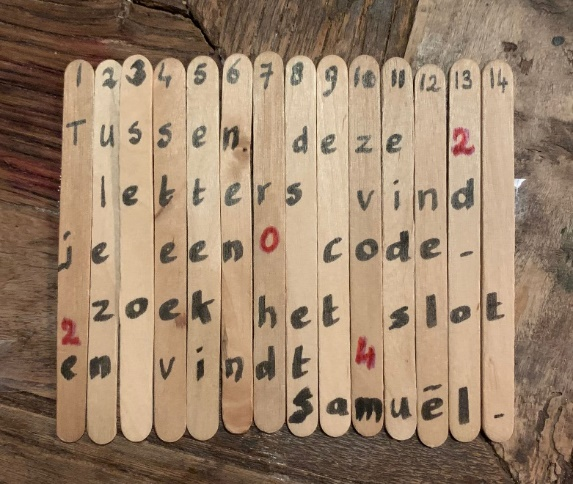 1 2 3 4 5 6 7 8 9 10 11 12 13 14
Tussen deze 2
letters vind
je een 0 code-
2 zoek het slot
en vindt 4
Samuël-